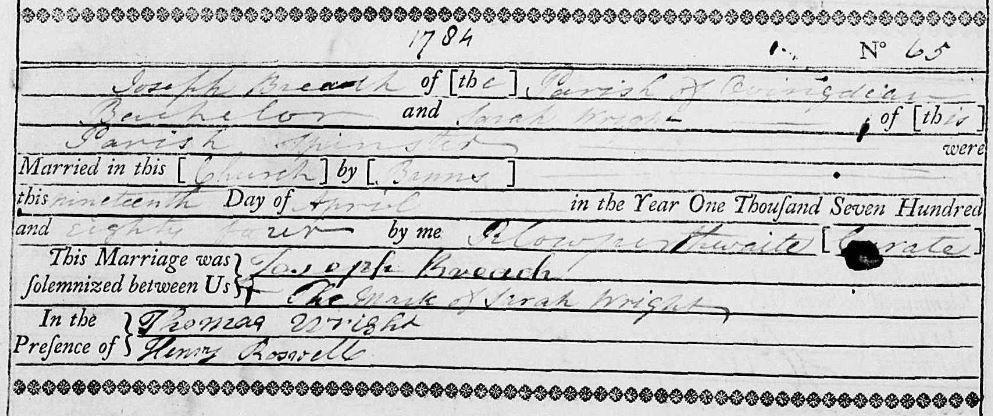 1784
No 65
Joseph Breach of [the] Parish of Ovingdean
Batchelor and Sarah Wright of [this]
Parish Spinster were
Married in this [Church] by [Banns]
this nineteenth Day of April in the Year One Thouſand Seven Hundred
and eighty four by me [Curate]
This Marriage was
ſolemnized between Us } Joseph Breach
+ The Mark of Sarah Wright
In the
Preſence of } Thomas Wright
Henry Boswell